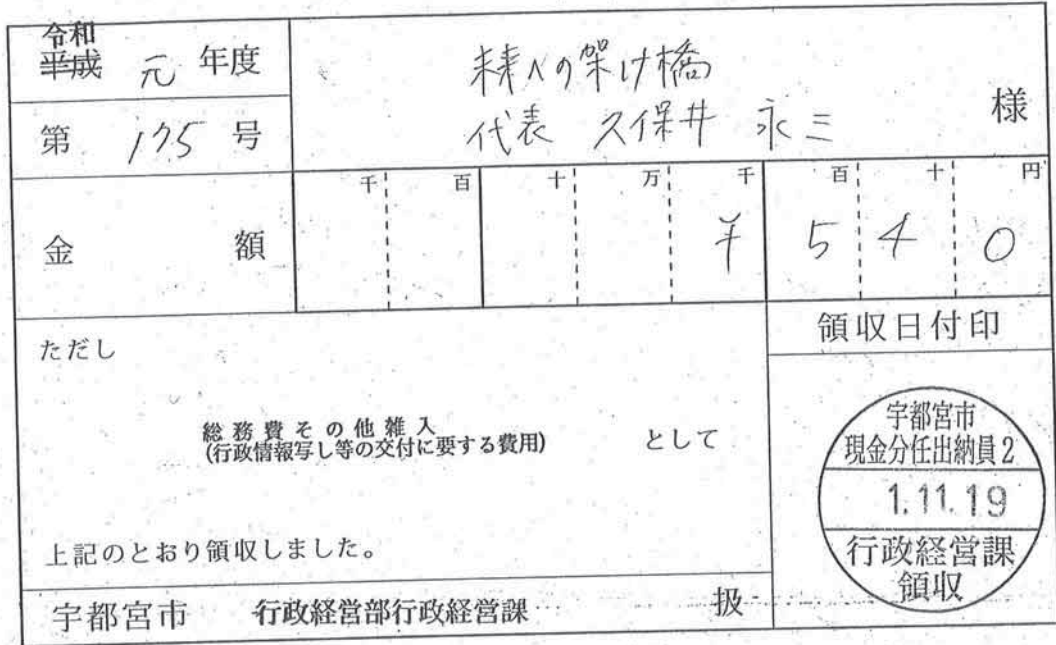 令和
平成 元 年度
第 175 号
未来への架け橋
代表 久保井 永三 様
千 百 十 万 千 百 十 円
金額 ¥ 5 4 0
領収日付印
ただし
総務費その他雑入
(行政情報写し等の交付に要する費用) として
上記のとおり領収しました。
宇都宮市 行政経営部行政経営課 扱
宇都宮市
現金分任出納員2
1.11.19
行政経営課
領収